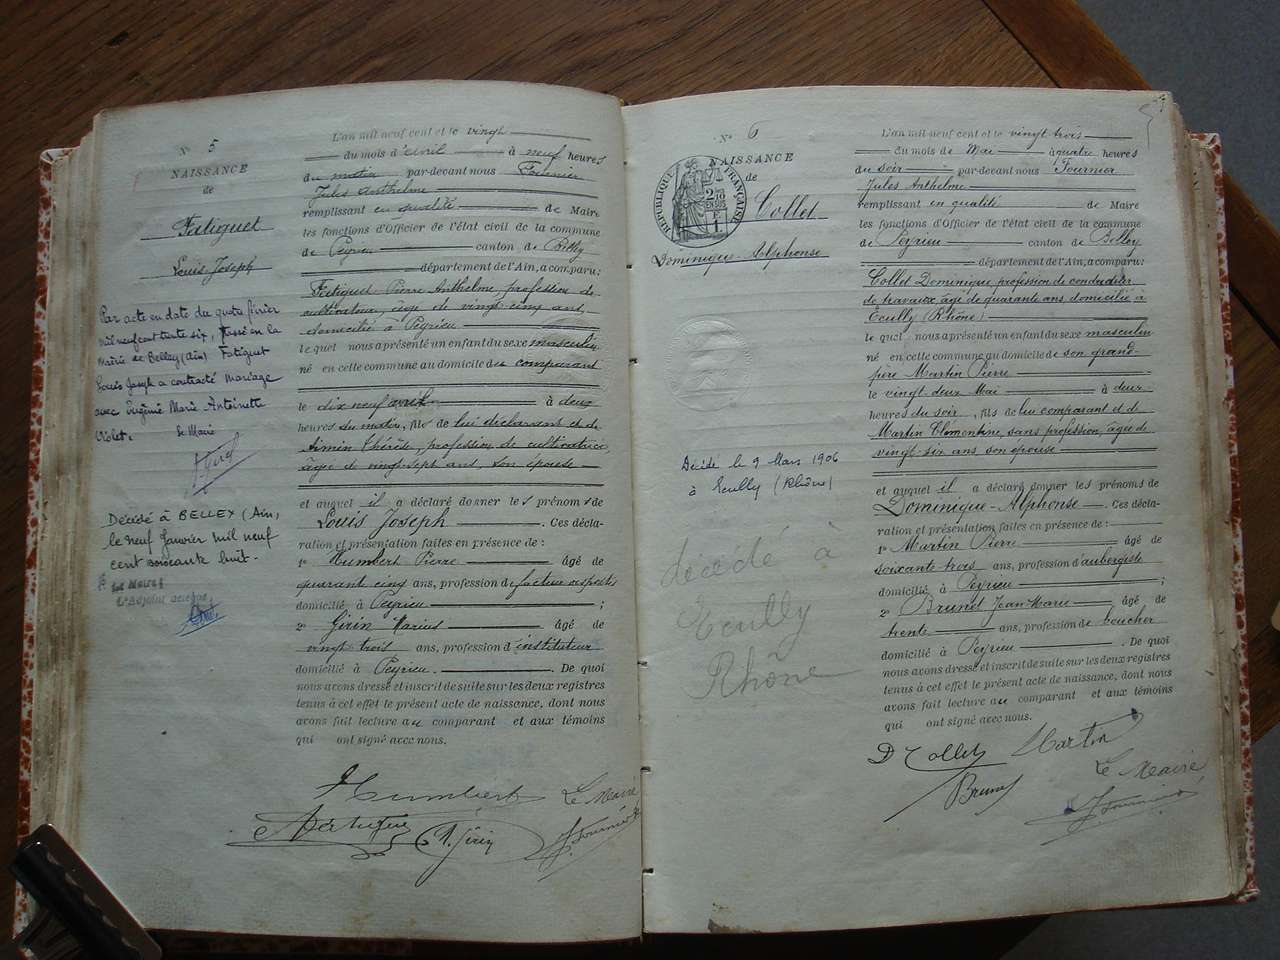 N° 5
NAISSANCE
de
Fatiguet
Louis Joseph
Par acte en date du quatre février
mil neuf cent trente six, passé en la
Mairie de Belley (Ain) Fatiguet
Louis Joseph a contracté mariage
avec Eugénie Marie Antoinette
Violet.
le Maire
Décédé à BELLEY (Ain,
le neuf Janvier mil neuf
cent soixante huit.
Le Maire,
L'Adjoint délégué
L'an mil neuf cent et le vingt
du mois d'avril à neuf heures
du matin par-devant nous Fournier
Jules Anthelme
remplissant en qualité de Maire
les fonctions d'Officier de l'état civil de la commune
de Peyrieu canton de Belley
département de l'Ain, a comparu:
Fatiguet Pierre Anthelme, profession de
cultivateur, âgé de vingt cinq ans,
domicilié à Peyrieu
lequel nous a présenté un enfant du sexe masculin
né en cette commune au domicile du comparant
le dix neuf avril à deux
heures du matin, fils de lui déclarant et de
Thérèse, profession de cultivatrice,
âgée de vingt sept ans, son épouse
et auquel il a déclaré donner les prénoms de
Louis Joseph. Ces décla-
ration et présentation faites en présence de :
1° Humbert Pierre âgé de
quarant cinq ans, profession de facteur des postes
domicilié à Peyrieu ;
2° Girin Marius âgé de
vingt trois ans, profession d'instituteur
domicilié à Peyrieu. De quoi
nous avons dressé et inscrit de suite sur les deux registres
tenus à cet effet le présent acte de naissance, dont
avons fait lecture au comparant et aux témoins
qui ont signé avec nous.
Humbert Le Maire
Fatiguet Girin Fournier
N° 6
NAISSANCE
de
RÉPUBLIQUE FRANÇAISE
Collet
Dominique-Alphonse
Décédé le 9 Mars 1906
à Ecully (Rhône)
décédé à
Ecully
Rhône
L'an mil neuf cent et le vingt trois
du mois de Mai à quatre heures
du soir par-devant nous Fournier
Jules Anthelme
remplissant en qualité de Maire
les fonctions d'Officier de l'état civil de la commune
de Peyrieu canton de Belley
département de l'Ain, a comparu:
Collet Dominique, profession de conducteur
de travaux, âgé de quarante ans, domicilié à
Ecully (Rhône)
lequel nous a présenté un enfant du sexe masculin
né en cette commune au domicile de son grand-
père Martin Pierre
le vingt deux Mai à deux
heures du soir, fils de lui comparant et de
Martin Clémentine, sans profession, âgée de
vingt-six ans son épouse
et auquel il a déclaré donner les prénoms de
Dominique-Alphonse. Ces décla-
ration et présentation faites en présence de :
1° Martin Pierre âgé de
soixante-trois ans, profession d'aubergiste
domicilié à Peyrieu ;
2° Brunet Jean Marie âgé de
trente ans, profession de boucher
domicilié à Peyrieu. De quoi
nous avons dressé et inscrit de suite sur les deux registres
tenus à cet effet le présent acte de naissance, dont nous
avons fait lecture au comparant et aux témoins
qui ont signé avec nous.
D Collet Martin
Brunet Le Maire
Fournier